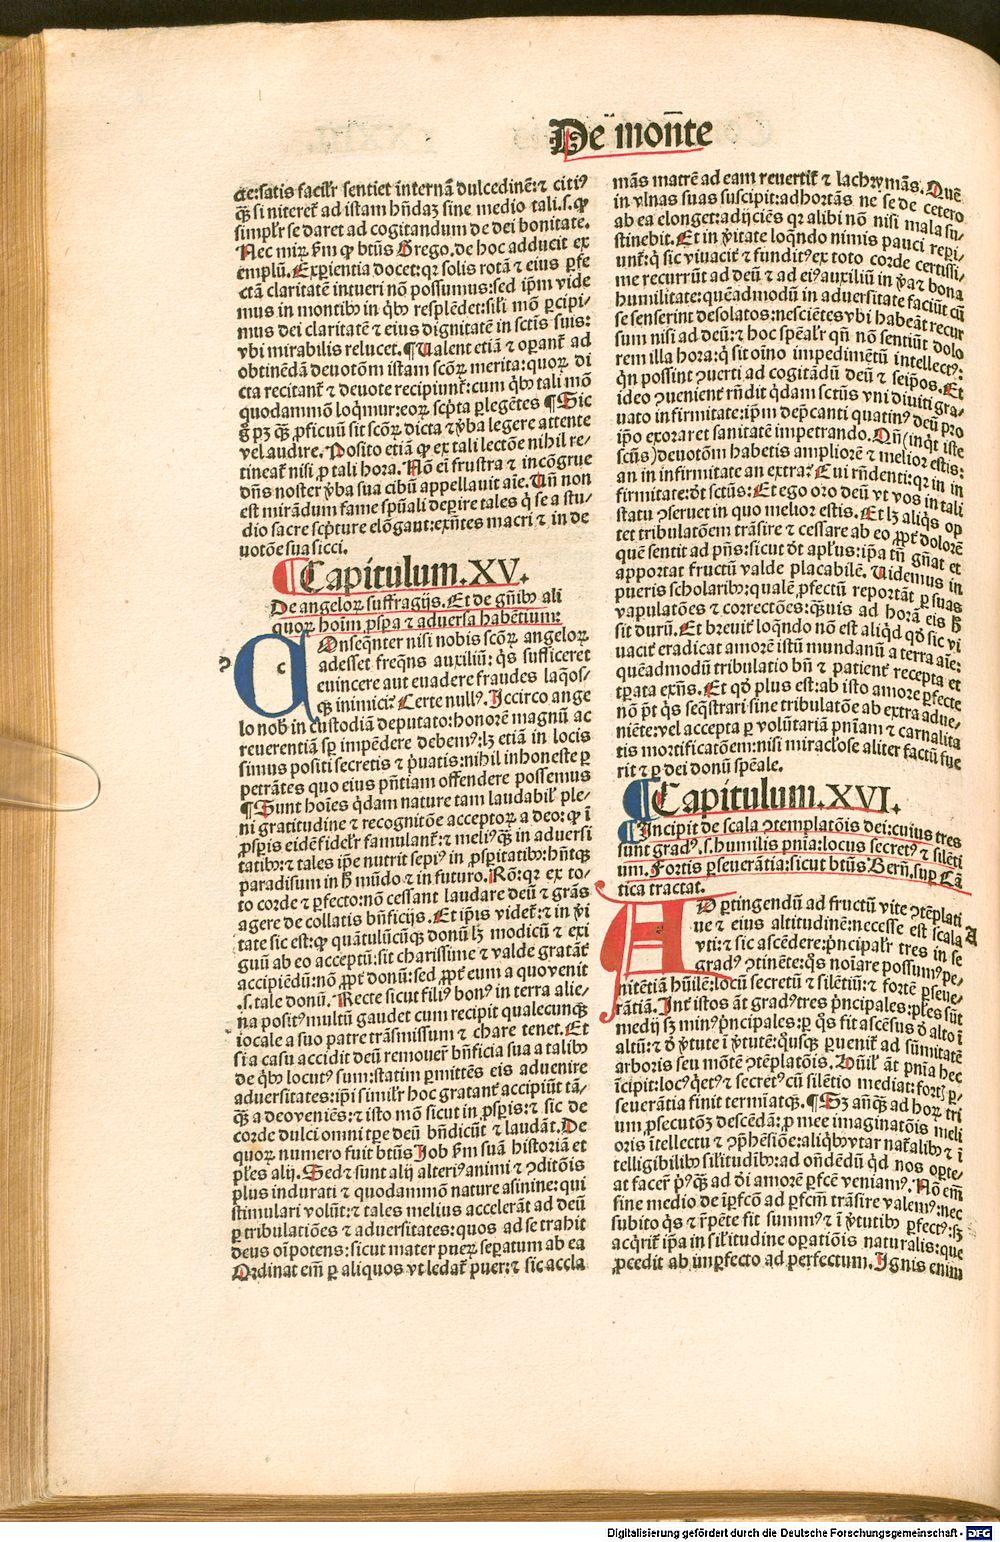 De mon̄te
de: satis facilr̄ sentiet internā dulcedinē: ⁊ citiꝰ
q̄ꝫ si niteret̄ ad istam hn̄daꝫ sine medio tali. s. ꝙ
simplr̄ se daret ad cogitandum de dei bonitate.
Nec miꝝ bm̄ ꝙ btūs Grego. de hoc adducit ex
emplū. Experientia docet: qꝛ solis rotā ⁊ eius ꝑfe
ctā claritatē intueri nō possumus: sed ip̄m vide
mus in montibꝰ in qͥbꝰ resplēdet: sil̄i mō ꝑcipi⸗
mus dei claritatē ⁊ eius dignitatē in sctīs suis:
vbi mirabilis relucet. ¶ Ualent etiā ⁊ operant̄ ad
obtinēdā deuotōm istam scōꝝ merita: quoꝝ di
cta recitant̄ ⁊ deuote recipiunt̄: cum qͥbꝰ tali mō
quodammō loq̄mur: eoꝝ scp̄ta ꝑlegētes ¶ Sic
g̊ pꝫ q̄ꝫ ꝓficuū sit scōꝝ dicta ⁊ v̄ba legere attente
vel audire. Posito etiā ꝙ ex tali lectōe nihil re⸗
tineat̄ nisi ꝓ tali hora. Nō em̄ frustra ⁊ incōgrue
dn̄s noster v̄ba sua cibū appellauit aīe. Un̄ non
est mirādum fame spūali deperire tales q̇ se a stu⸗
dio sacre scp̄ture elōgant: exn̄tes macri ⁊ in de
uotōe sua sicci.
¶ Capitulum. XV.
De angeloꝝ suffragijs. Et de gn̄ibꝰ ali
quoꝝ hoīm ꝓspa ⁊ aduersa habētium:
COnseq̄nter nisi nobis scōꝝ angeloꝝ
adesset freq̄ns auxiliū: q̇s sufficeret
euincere aut euadere fraudes laq̄os⸗
q̄ꝫ inimici? Certe nullꝰ. Iccirco ange
lo nob̄ in custodiā deputato: honorē magnū ac
reuerentiā sp̄ impēdere debemꝰ: lꝫ etiā in locis
simus positi secretis ⁊ pͥuatis: nihil inhoneste ꝑ
petrātes quo eius pn̄tiam offendere possemus
¶ Sunt hoīes q̇dam nature tam laudabil̄ ple⸗
ni gratitudine ⁊ recognitōe acceptoꝝ a deo: ꝙ ī
ꝓspis eidē fidelr̄ famulant̄: ⁊ meliꝰ q̄ꝫ in aduersi
tatibꝰ: ⁊ tales ip̄e nutrit sepiꝰ in ꝓspitatibꝰ: hn̄tq̄ꝫ
paradisum in h̄ mūdo ⁊ in futuro. Rō: qꝛ ex to⸗
to corde ⁊ ꝑfecto: nō cessant laudare deū ⁊ grās
agere de collatis bn̄ficijs. Et ip̄is videt̄: ⁊ in v̄i
tate sic est: ꝙ quātulūcūq̄ꝫ donū lꝫ modicū ⁊ exi
guū ab eo acceptū: sit charissime ⁊ valde gratāt̄
accipiēdū: nō ꝓpt̄ donū: sed ꝓpt̄ eum a quo venit
. s. tale donū. Recte sicut filiꝰ bonꝰ in terra alie⸗
na positꝰ multū gaudet cum recipit qualecunq̄ꝫ
iocale a suo patre trāsmissum ⁊ chare tenet. Et
si a casu accidit deū remouer̄ bn̄ficia sua a talibꝰ
de qͥbꝰ locutꝰ sum: statim ꝑmittēs eis aduenire
aduersitates: ip̄i similr̄ hoc gratant̄ accipiūt tā⸗
q̄ꝫ a deo veniēs: ⁊ isto mō sicut in ꝓspis: ⁊ sic de
corde dulci omni tp̄e deū bn̄dicūt ⁊ laudāt. De
quoꝝ numero fuit btūs Iob bm̄ suā historiā et
pl̄es alij. Sed ⁊ sunt alij alteriꝰ animi ⁊ ꝯditōis
plus indurati ⁊ quodammō nature asinine: qui
stimulari volūt: ⁊ tales melius accelerāt ad deū
ꝑ tribulatiōes ⁊ aduersitates: quos ad se trahit
deus oīpotens: sicut mater pueꝝ sepatum ab ea
Ordinat em̄ ꝑ aliquos vt ledat̄ puer: ⁊ sic accla
māns matrē ad eam reuertit̄ ⁊ lachrymās. Quē
in vlnas suas suscipit: adhortās ne se de cetero
ab ea elonget: adijciēs qꝛ alibi nō nisi mala su⸗
stinebit. Et in v̄itate loq̄ndo nimis pauci reperi⸗
unt̄: q̇ sic viuacit̄ ⁊ funditꝰ ex toto corde certissi⸗
me recurrūt ad deū ⁊ ad eiꝰ auxiliū in v̄a ⁊ bona
humilitate: quēadmodū in aduersitate faciūt cū
se senserint desolatos: nesciētes vbi habeāt recur
sum nisi ad deū: ⁊ hoc spēalr̄ qn̄ nō sentiūt dolo
rem illa hora: q̇ sit oīno impedimētū intellectꝰ:
q̇n possint ꝯuerti ad cogitādū deū ⁊ seip̄os. Et
ideo ꝯuenient̄ rn̄dit q̇dam sctūs vni diuiti gra⸗
uato infirmitate: ip̄m dep̄canti quatinꝰ deū pro
ip̄o exoraret sanitatē impetrando. Qn̄ (inq̇t iste
scūs) deuotōm habetis ampliorē ⁊ melior estis:
an in infirmitate an extra? Cui rn̄denti: qꝛ in in
firmitate: dt̄ sctūs: Et ego oro deū vt vos in tali
statu ꝯseruet in quo melior estis. Et lꝫ aliq̇s op
tet tribulatōem trāsire ⁊ cessare ab eo ꝓpt̄ dolorē
quē sentit ad pn̄s: sicut dt̄ apl̄us: ip̄a tn̄ gn̄at et
apportat fructū valde placabilē. Uidemus in
pueris scholaribꝰ: qualē ꝓfectū reportāt ꝑ suas
vapulatōes ⁊ correctōes: q̄ꝫuis ad horā eis h̄
sit durū. Et breuit̄ loq̄ndo nō est aliq̇d qd̄ sic vi
uacit̄ eradicat amorē istū mundanū a terra aīe:
quēadmodū tribulatio bn̄ ⁊ patient̄ recepta et
tꝑata exn̄s. Et qd̄ plus est: ab isto amore ꝑfecte
nō p̄t q̇s seq̄strari sine tribulatōe ab extra adue⸗
niēte: vel accepta ꝑ volūtariā pn̄iam ⁊ carnalita
tis mortificatōem: nisi miraclōse aliter factū fue
rit ⁊ ꝑ dei donū spēale.
¶ Capitulum. XVI.
¶ Incipit de scala ꝯtemplatōis dei: cuius tres
sunt gradꝰ. s. humilis pn̄ia: locus secretꝰ ⁊ silēti
um. Fortis ꝑseuerātia: sicut btūs Bern̄. suꝑ Cā
tica tractat.
AD ꝑtingendū ad fructū vite ꝯtēplati
ue ⁊ eius altitudinē: necesse est scala
vti: ⁊ sic ascēdere: pͥncipalr̄ tres in se
gradꝰ ꝯtinēte: q̇s noīare possumꝰ pe⸗
nitētiā hūilē: locū secretū ⁊ silētiū: ⁊ fortē ꝑseue⸗
rātiā. Int̄ istos āt gradꝰ tres pͥncipales: pl̄es sūt
medij sꝫ minꝰ pͥncipales: ꝑ q̇s fit ascēsus d̄ alto ī
altū: ⁊ d̄ v̄tute ī v̄tutē: q̇usq̄ꝫ ꝑuenit̄ ad sūmitatē
arboris seu mōtē ꝯtēplatōis. Hūil̄ āt pn̄ia hec
īcipit: locꝰ q̇etꝰ ⁊ secretꝰ cū silētio mediat: fortꝭ ꝑ⸗
seuerātia finit termīatq̄ꝫ. ¶ Sꝫ anq̄ꝫ ad hoꝝ tri
um ꝓsecutōꝫ descēdā: ꝓ mee imaginatōis meli
oris ītellectu ⁊ ꝯp̄hēsiōe: aliqͥbꝰ vtar nat̄alibꝰ ⁊ ī
telligibilibꝰ sil̄itudībꝰ: ad on̄dēdū q̇d nos oꝑte⸗
at facer̄ pͥꝰq̄ꝫ ad di amorē ꝑfcē veniamꝰ. Nō em̄
sine medio de īꝑfcō ad ꝑfcm̄ trāsire valemꝰ: nec
subito q̇s ⁊ r̄pēte fit summꝰ ⁊ ī v̄tutibꝰ ꝑfectꝰ: sꝫ
acq̇rit̄ ip̄a in sil̄itudine oꝑatiōis naturalis: que
ꝓcedit ab imꝑfecto ad perfectum. Ignis enim
Digitalisierung gefördert durch die Deutsche Forschungsgemeinschaft - DFG